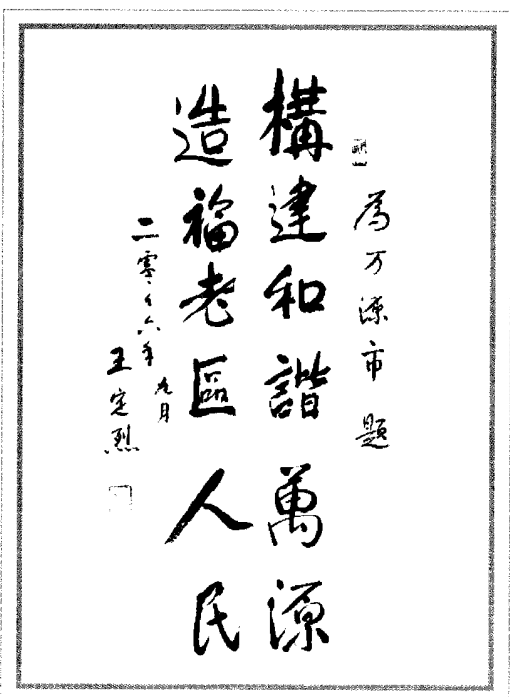 为万源市 題
構建和諧萬源
造福老區人民
二零零六年九月
王定烈